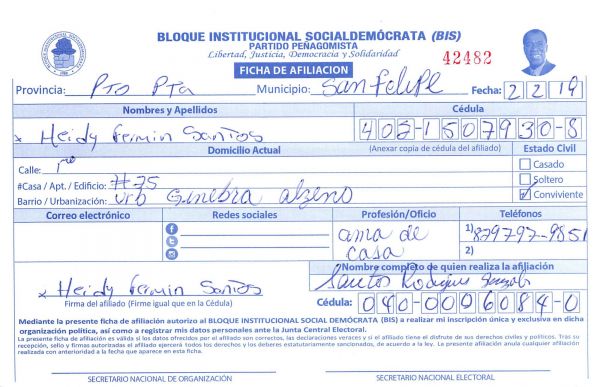 BLOQUE INSTITUCIONAL SOCIALDEMÓCRATA (BIS)
PARTIDO PEÑAGOMISTA
Libertad, Justicia, Democracia y Solidaridad
42482
FICHA DE AFILIACION
Provincia: Pto Pta Municipio: San Felipe Fecha: 2 2 19
Nombres y Apellidos Cédula
x Heidy Fermin Santos 402-1507930-8
Domicilio Actual (Anexar copia de cédula del afiliado) Estado Civil
Calle: 1ra Casado
#Casa / Apt. / Edificio: #75 Soltero
Barrio / Urbanización: Urb Ginebra Conviviente
Correo electrónico Redes sociales Profesión/Oficio Teléfonos
ama de casa
1) 879797-9851
2)
Nombre completo de quien realiza la afiliación
x Heidy Fermin Santos Santos Rodriguez
Firma del afiliado (Firme igual que en la Cédula) Cédula: 040-0006084-0
Mediante la presente ficha de afiliación autorizo al BLOQUE INSTITUCIONAL SOCIAL DEMÓCRATA (BIS) a realizar mi inscripción única y exclusiva en dicha
organización política, así como a registrar mis datos personales ante la Junta Central Electoral.
La presente ficha de afiliación es válida si los datos ofrecidos por el afiliado son correctos, las declaraciones veraces y si el afiliado tiene el disfrute de sus derechos civiles y políticos. Tras su
recepción, sello y firmas autorizadas el afiliado ejercerá todos los derechos y los deberes estatutariamente sancionados, de acuerdo a la ley. La presente afiliación anula cualquier afiliación
realizada con anterioridad a la fecha que aparece en esta ficha.
SECRETARIO NACIONAL DE ORGANIZACIÓN SECRETARIO NACIONAL ELECTORAL